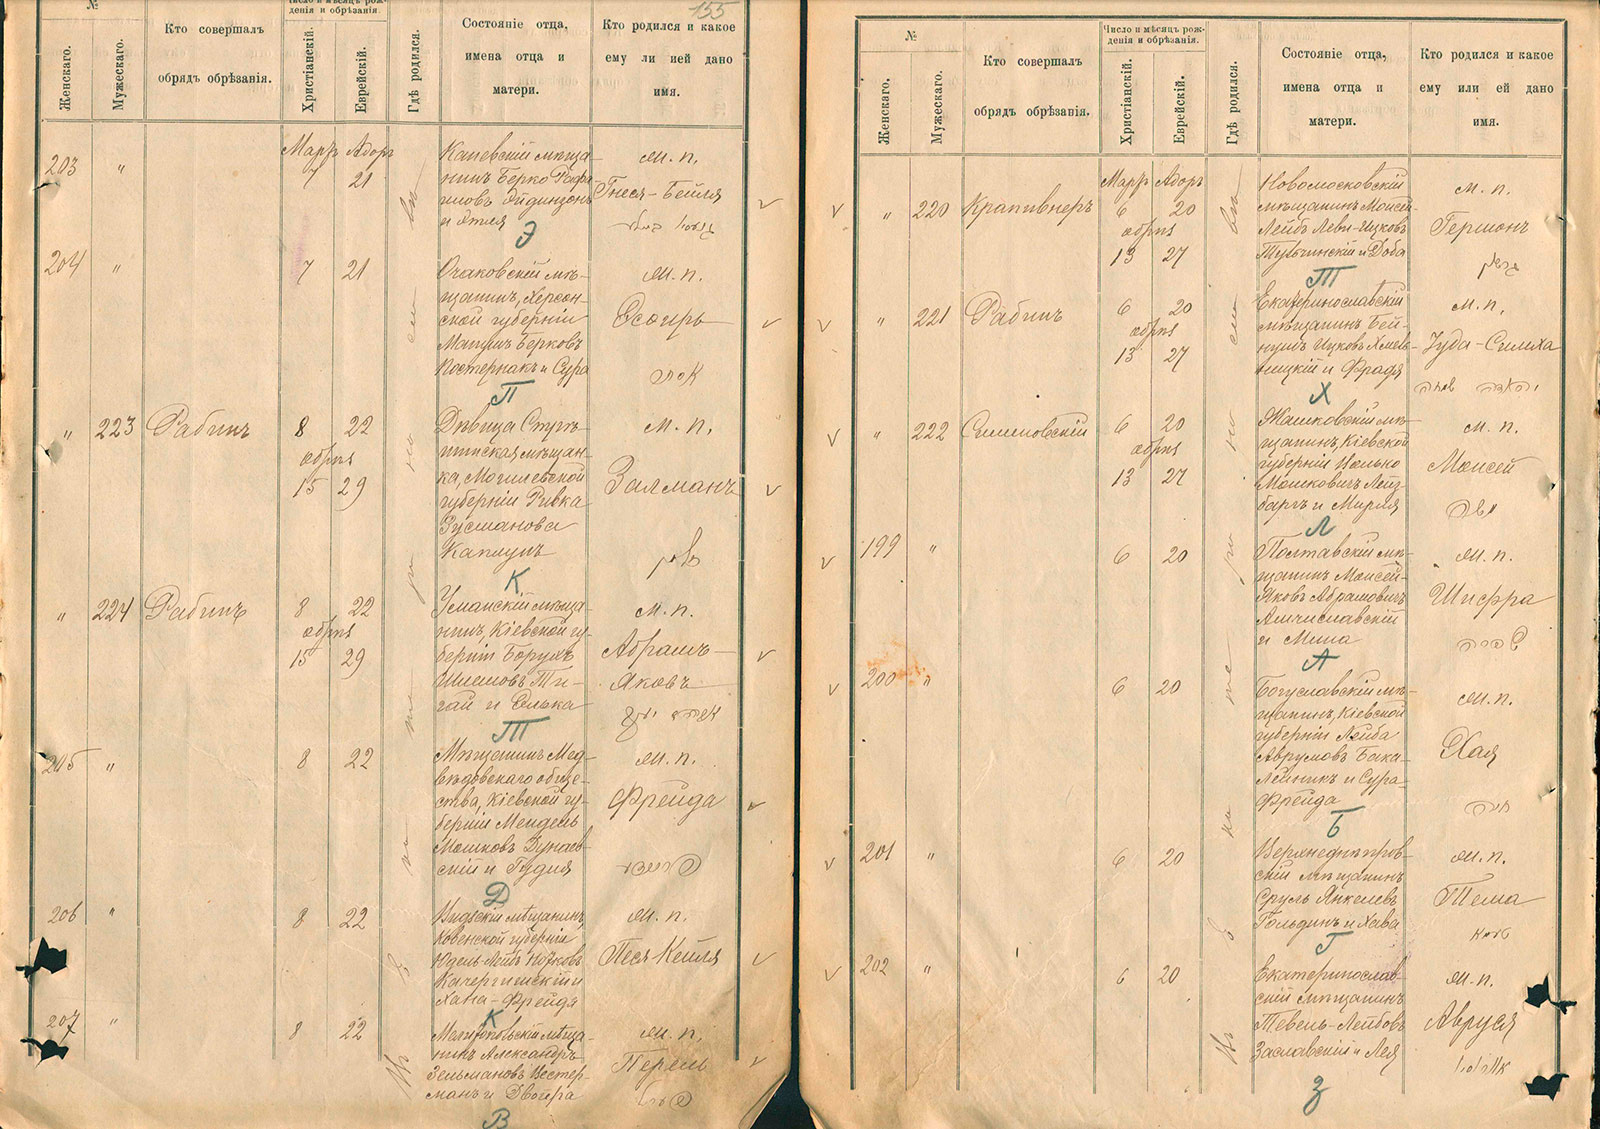 155
№
Женскаго.
Мужескаго.
Кто совершалъ
обрядъ обрѣзанія.
Число и мѣсяцъ рож-
денія и обрѣзанія.
Христіанскій.
Еврейскій.
Гдѣ родился.
Состояніе отца,
имена отца и
матери.
Кто родился и какое
ему ли ией дано
имя.
203
"
Мартъ Адоръ
7 21
Каневскій мѣща-
нинъ Берко Рафа-
иловъ Айдинзонъ
и Этля
Э
м. п.
Гнеся-Бейля
204
"
7 21
Очаковскій мѣ-
щанинъ, Херсон-
ской губерніи
Манусъ Берковъ
Постернакъ и Сура
П
м. п.
Эсѳирь
אסתר
"
223
Рабинъ
8 22
обрѣз
15 29
Дѣвица
мѣщан-
ка, Могилевской
губерніи Ривка
Зусманова
Каплунъ
К
м. п.
Залманъ
זלמן
"
224
Рабинъ
8 22
обрѣз
15 29
Уманскій мѣща-
нинъ, Кіевской гу-
берніи Борухъ
Шлемовъ Ти-
гай и Элька
Т
м. п.
Абрамъ-
Яковъ
אברהם יעקב
205
"
8 22
Мѣщанинъ Мед-
вѣдовскаго обще-
ства, Кіевской гу-
берніи Мендель
Мошковъ Дунаев-
скій и Гудля
Д
м. п.
Фрейда
פריידא
206
"
8 22
Видзскій мѣщанинъ,
Ковенской губерніи
Юдель-Лейбъ Нотковъ
Качергинскій и
Хана-Фрейдя
К
м. п.
Песя Кейля
207
"
8 22
мѣща-
нинъ Александръ
Зельмановъ Вестер-
манъ и Двойра
В
м. п.
Перель
№
Женскаго.
Мужескаго.
Кто совершалъ
обрядъ обрѣзанія.
Число и мѣсяцъ рож-
денія и обрѣзанія.
Христіанскій.
Еврейскій.
Гдѣ родился.
Состояніе отца,
имена отца и
матери.
Кто родился и какое
ему или ей дано
имя.
"
220
Крапивнеръ
Мартъ Адоръ
6 20
обрѣз
13 27
Новомосковскій
мѣщанинъ Моисей
Лейбъ Леви-Ицковъ
и Доба
Т
м. п.
Гершонъ
גרשון
"
221
Рабинъ
6 20
обрѣз
13 27
Екатеринославскій
мѣщанинъ Бей-
нушъ Ицковъ Хмель-
ницкій и Фрадя
Х
м. п.
Іуда-Симха
יהודה שמחה
"
222
Сименовскій
6 20
обрѣз
13 27
Жашковскій мѣ-
щанинъ, Кіевской
губерніи Ицько
Мошковичъ Лейз-
баргъ и Мирля
Л
м. п.
Моисей
משה
199
"
6 20
Полтавскій мѣ-
щанинъ Моисей-
Яковъ Абрамовичъ
Амчиславскій
и Миша
А
м. п.
Шифра
שפרה
200
"
6 20
Богуславскій мѣ-
щанинъ, Кіевской
губерніи Лейба
Аврумовъ Бака-
лейникъ и Сура
Фрейда
Б
м. п.
Хая
חיה
201
"
6 20
Верхнеднѣпров-
скій мѣщанинъ
Сруль Янкелевъ
Гольдинъ и Хава
Г
м. п.
Тема
טעמא
202
"
6 20
Екатеринослав-
скій мѣщанинъ
Тевель-Лейбовъ
Заславскій и Лея
З
м. п.
Авруся